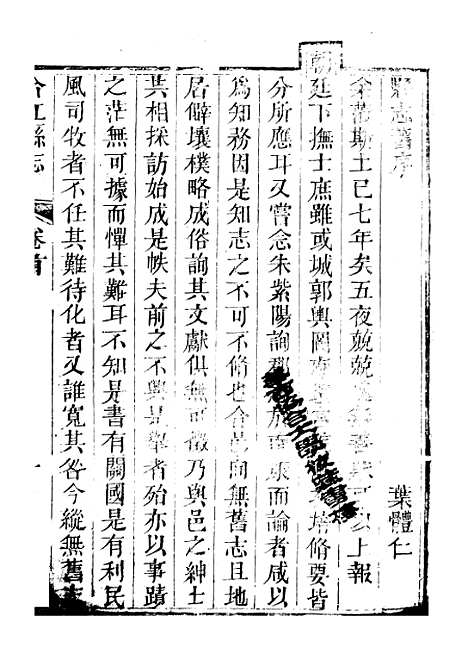 縣志舊序
葉體仁
余蒞斯土已七年矣五夜兢兢以上報
朝廷下撫士庶雖或城郭輿圖培脩要皆
分所應耳又嘗念朱紫陽詢郡於南康而論者咸以
為知務因是知志之不可不脩也合邑向無舊志且地
居僻壤樸略成俗詢其文獻俱無可徵乃與邑之紳士
共相採訪始成是帙夫前之不興是舉者殆亦以事蹟
之茫無可據而憚其難耳不知是書有關國是有利民
風司牧者不任其難待化者又誰寬其咎今縱無舊志
合江縣志
卷首